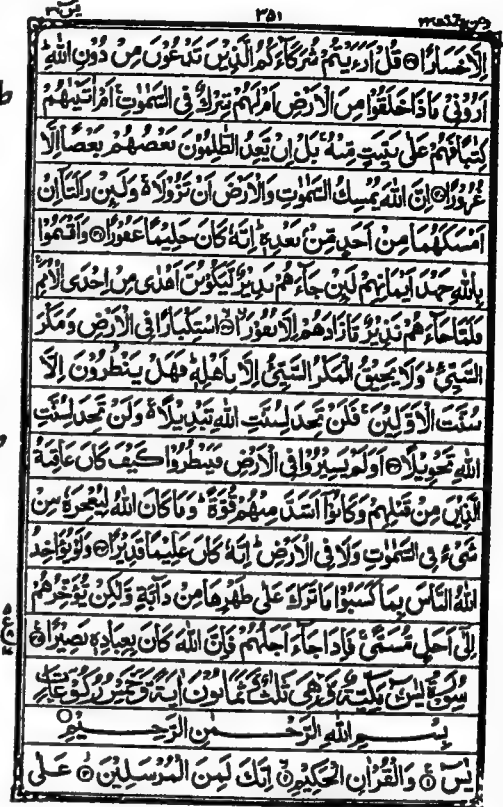 یٰسٓ ٣٦ ٣٥١ ومن یقنت ٢٢
اِلَّا خَسَارًا ۞ قُلْ اَرَءَيْتُمْ شُرَكَآءَكُمُ الَّذِيْنَ تَدْعُوْنَ مِنْ دُوْنِ اللّٰهِ ؕ
اَرُوْنِيْ مَاذَا خَلَقُوْا مِنَ الْاَرْضِ اَمْ لَهُمْ شِرْكٌ فِي السَّمٰوٰتِ ۚ اَمْ اٰتَيْنٰهُمْ
كِتٰبًا فَهُمْ عَلٰى بَيِّنَتٍ مِّنْهُ ۚ بَلْ اِنْ يَّعِدُ الظّٰلِمُوْنَ بَعْضُهُمْ بَعْضًا اِلَّا
غُرُوْرًا ۞ اِنَّ اللّٰهَ يُمْسِكُ السَّمٰوٰتِ وَالْاَرْضَ اَنْ تَزُوْلَا ۚ وَلَئِنْ زَالَتَاۤ اِنْ
اَمْسَكَهُمَا مِنْ اَحَدٍ مِّنْۢ بَعْدِهٖ ؕ اِنَّهٗ كَانَ حَلِيْمًا غَفُوْرًا ۞ وَاَقْسَمُوْا
بِاللّٰهِ جَهْدَ اَيْمَانِهِمْ لَئِنْ جَآءَهُمْ نَذِيْرٌ لَّيَكُوْنُنَّ اَهْدٰى مِنْ اِحْدَى الْاُمَمِ ۚ
فَلَمَّا جَآءَهُمْ نَذِيْرٌ مَّا زَادَهُمْ اِلَّا نُفُوْرًا ۞ اسْتِكْبَارًا فِي الْاَرْضِ وَمَكْرَ
السَّيِّئِ ؕ وَلَا يَحِيْقُ الْمَكْرُ السَّيِّئُ اِلَّا بِاَهْلِهٖ ؕ فَهَلْ يَنْظُرُوْنَ اِلَّا
سُنَّتَ الْاَوَّلِيْنَ ۚ فَلَنْ تَجِدَ لِسُنَّتِ اللّٰهِ تَبْدِيْلًا ۚ وَلَنْ تَجِدَ لِسُنَّتِ
اللّٰهِ تَحْوِيْلًا ۞ اَوَلَمْ يَسِيْرُوْا فِي الْاَرْضِ فَيَنْظُرُوْا كَيْفَ كَانَ عَاقِبَةُ
الَّذِيْنَ مِنْ قَبْلِهِمْ وَكَانُوْۤا اَشَدَّ مِنْهُمْ قُوَّةً ؕ وَمَا كَانَ اللّٰهُ لِيُعْجِزَهٗ مِنْ
شَيْءٍ فِي السَّمٰوٰتِ وَلَا فِي الْاَرْضِ ؕ اِنَّهٗ كَانَ عَلِيْمًا قَدِيْرًا ۞ وَلَوْ يُؤَاخِذُ
اللّٰهُ النَّاسَ بِمَا كَسَبُوْا مَا تَرَكَ عَلٰى ظَهْرِهَا مِنْ دَآبَّةٍ وَّلٰكِنْ يُّؤَخِّرُهُمْ
اِلٰۤى اَجَلٍ مُّسَمًّى ۚ فَاِذَا جَآءَ اَجَلُهُمْ فَاِنَّ اللّٰهَ كَانَ بِعِبَادِهٖ بَصِيْرًا ۞
سُوْرَةُ يٰسٓ مَكِّيَّةٌ وَّهِيَ ثَلٰثٌ وَّثَمَانُوْنَ اٰيَةً وَّخَمْسُ رُكُوْعَاتٍ
بِسْمِ اللّٰهِ الرَّحْمٰنِ الرَّحِيْمِ
يٰسٓ ۞ وَالْقُرْاٰنِ الْحَكِيْمِ ۞ اِنَّكَ لَمِنَ الْمُرْسَلِيْنَ ۞ عَلٰى